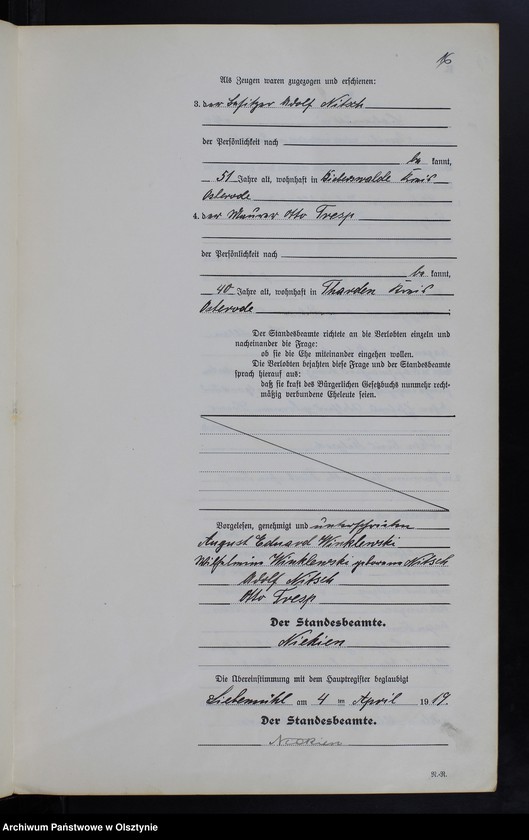 16
Als Zeugen waren zugezogen und erschienen:
3. der Besitzer Adolf Nitsch
der Persönlichkeit nach
be kannt,
51 Jahre alt, wohnhaft in Bieberswalde Kreis
Osterode
4. der Maurer Otto Tresp
der Persönlichkeit nach
be kannt,
40 Jahre alt, wohnhaft in Tharden Kreis
Osterode
Der Standesbeamte richtete an die Verlobten einzeln und
nacheinander die Frage:
ob sie die Ehe miteinander eingehen wollen.
Die Verlobten bejahten diese Frage und der Standesbeamte
sprach hierauf aus:
daß sie kraft des Bürgerlichen Gesetzbuchs nunmehr recht-
mäßig verbundene Eheleute seien.
Vorgelesen, genehmigt und unterschrieben
August Eduard Winklewski
Wilhelmine Winklewski geborene Nitsch
Adolf Nitsch
Otto Tresp
Der Standesbeamte.
Niekien
Die Übereinstimmung mit dem Hauptregister beglaubigt
Liebemühl am 4 ten April 1917.
Der Standesbeamte.
Niekien
N.-R.
Archiwum Państwowe w Olsztynie